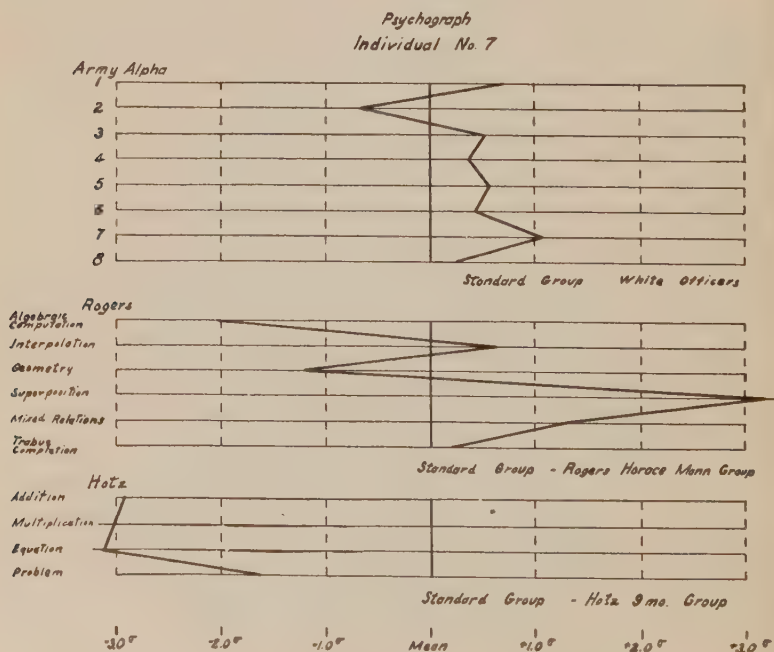 Psychograph
Individual No. 7
Army Alpha
1
2
3
4
5
6
7
8
Standard Group White Officers
Rogers
Algebraic
Computation
Interpolation
Geometry
Superposition
Mixed Relations
Trabue
Completion
Standard Group - Rogers Horace Mann Group
Hotz
Addition
Multiplication
Equation
Problem
Standard Group - Hotz 9 mo. Group
-3.0σ -2.0σ -1.0σ Mean +1.0σ +2.0σ +3.0σ